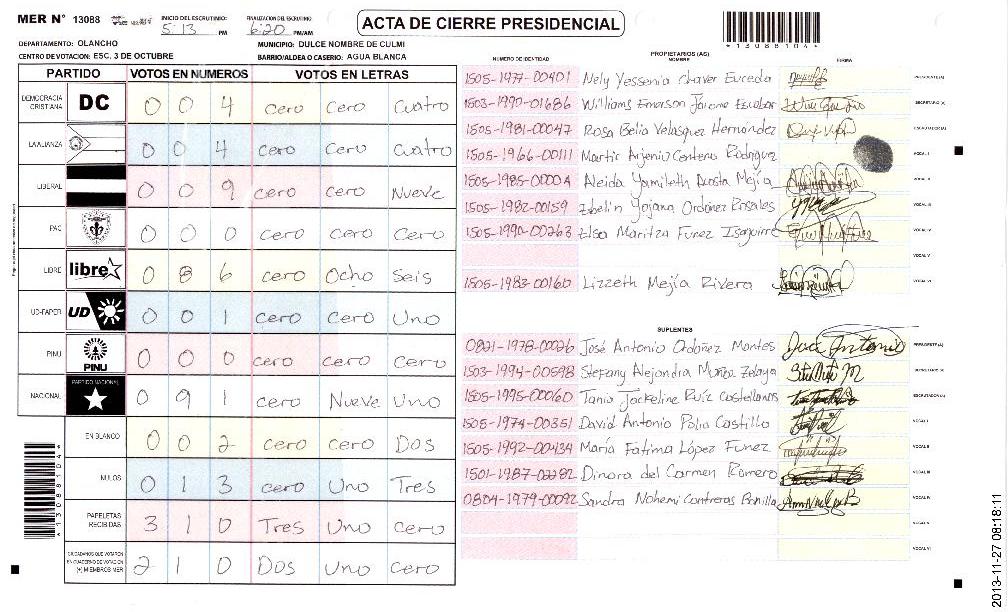 MER N° 13088
INICIO DEL ESCRUTINIO: 5:13 PM
FINALIZACION DEL ESCRUTINIO 6:20 PM/AM
ACTA DE CIERRE PRESIDENCIAL
*13088104*
DEPARTAMENTO: OLANCHO
MUNICIPIO: DULCE NOMBRE DE CULMI
CENTRO DE VOTACION: ESC. 3 DE OCTUBRE
BARRIO/ALDEA O CASERIO: AGUA BLANCA
PARTIDO VOTOS EN NUMEROS VOTOS EN LETRAS
DEMOCRACIA CRISTIANA DC 0 0 4 cero Cero Cuatro
LA ALIANZA 0 0 4 cero Cero Cuatro
LIBERAL 0 0 9 cero cero Nueve
PAC 0 0 0 cero cero Cero
LIBRE libre 0 8 6 cero Ocho Seis
UD-FAPER UD 0 0 1 cero Cero Uno
PINU PINU 0 0 0 cero cero Cero
NACIONAL PARTIDO NACIONAL 0 9 1 cero Nueve Uno
EN BLANCO 0 0 2 cero cero Dos
NULOS 0 1 3 cero Uno Tres
PAPELETAS RECIBIDAS 3 1 0 Tres Uno cero
CIUDADANOS QUE VOTARON EN CUADERNO DE VOTACION (+) MIEMBROS MER 2 1 0 Dos Uno cero
*13088104*
NUMERO DE IDENTIDAD PROPIETARIOS (AS) NOMBRE FIRMA
1505-1977-00401 Nely Yessenia Chaver Euceda PRESIDENTE(A)
1503-1990-01686 Williams Emerson Jairome Escobar SECRETARIO (A)
1505-1981-00047 Rosa Belia Velasquez Hernández ESCRUTADOR (A)
1505-1966-00111 Martir Arjenio Centeno Rodriguez VOCAL I
Aleida Yamileth Acosta Mejía VOCAL II
1505-1982-00159 Yojana Ordoñez Rosales VOCAL III
1505-1990-00263 Elsa Maritza Funez Isaguirre VOCAL IV
VOCAL V
1505-1983-00160 Lizzeth Mejía Rivera VOCAL VI
SUPLENTES
0821-1978-00026 José Antonio Ordoñez Montes José Antonio PRESIDENTE (A)
1503-1994-00598 Stefany Alejandra Muñoz Zelaya SECRETARIO (A)
1505-1995-00060 Tania Jackeline Ruíz Castellanos ESCRUTADOR (A)
1505-1974-00351 David Antonio Castillo VOCAL I
1505-1992-00434 María Fatima López Funez VOCAL II
1501-1987-02282 Dinora del Carmen Romero VOCAL III
0804-1979-00092 Sandra Nohemi Contreras Bonilla VOCAL IV
VOCAL V
VOCAL VI
2013-11-27 08:18:11